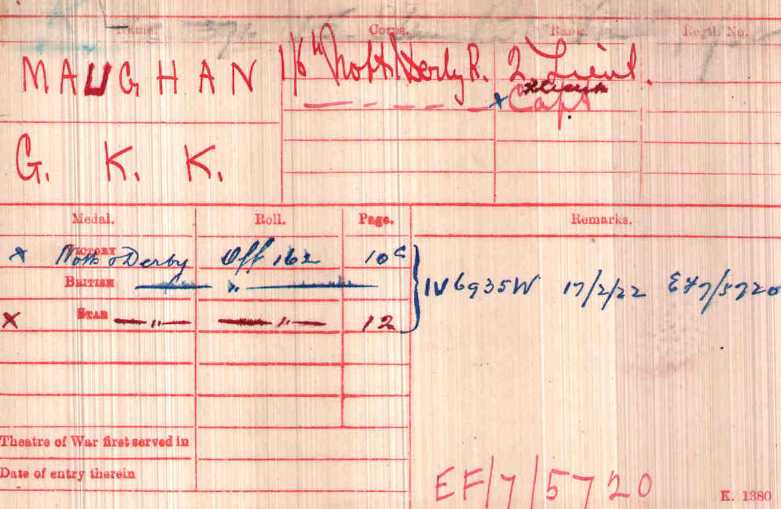 Name. Corps. Rank. Regtl. No.
MAUGHAN 16th Notts & Derby R. 2 Lieut.
— — — — x Capt
G. K. K.
Medal. Roll. Page. Remarks.
x VICTORY Notts & Derby Off 162 10c
BRITISH — " — IV 6935W 17/2/22 EF7/5720
x STAR — " — — " — 12
Theatre of War first served in
Date of entry therein
EF/7/5720
K. 1380